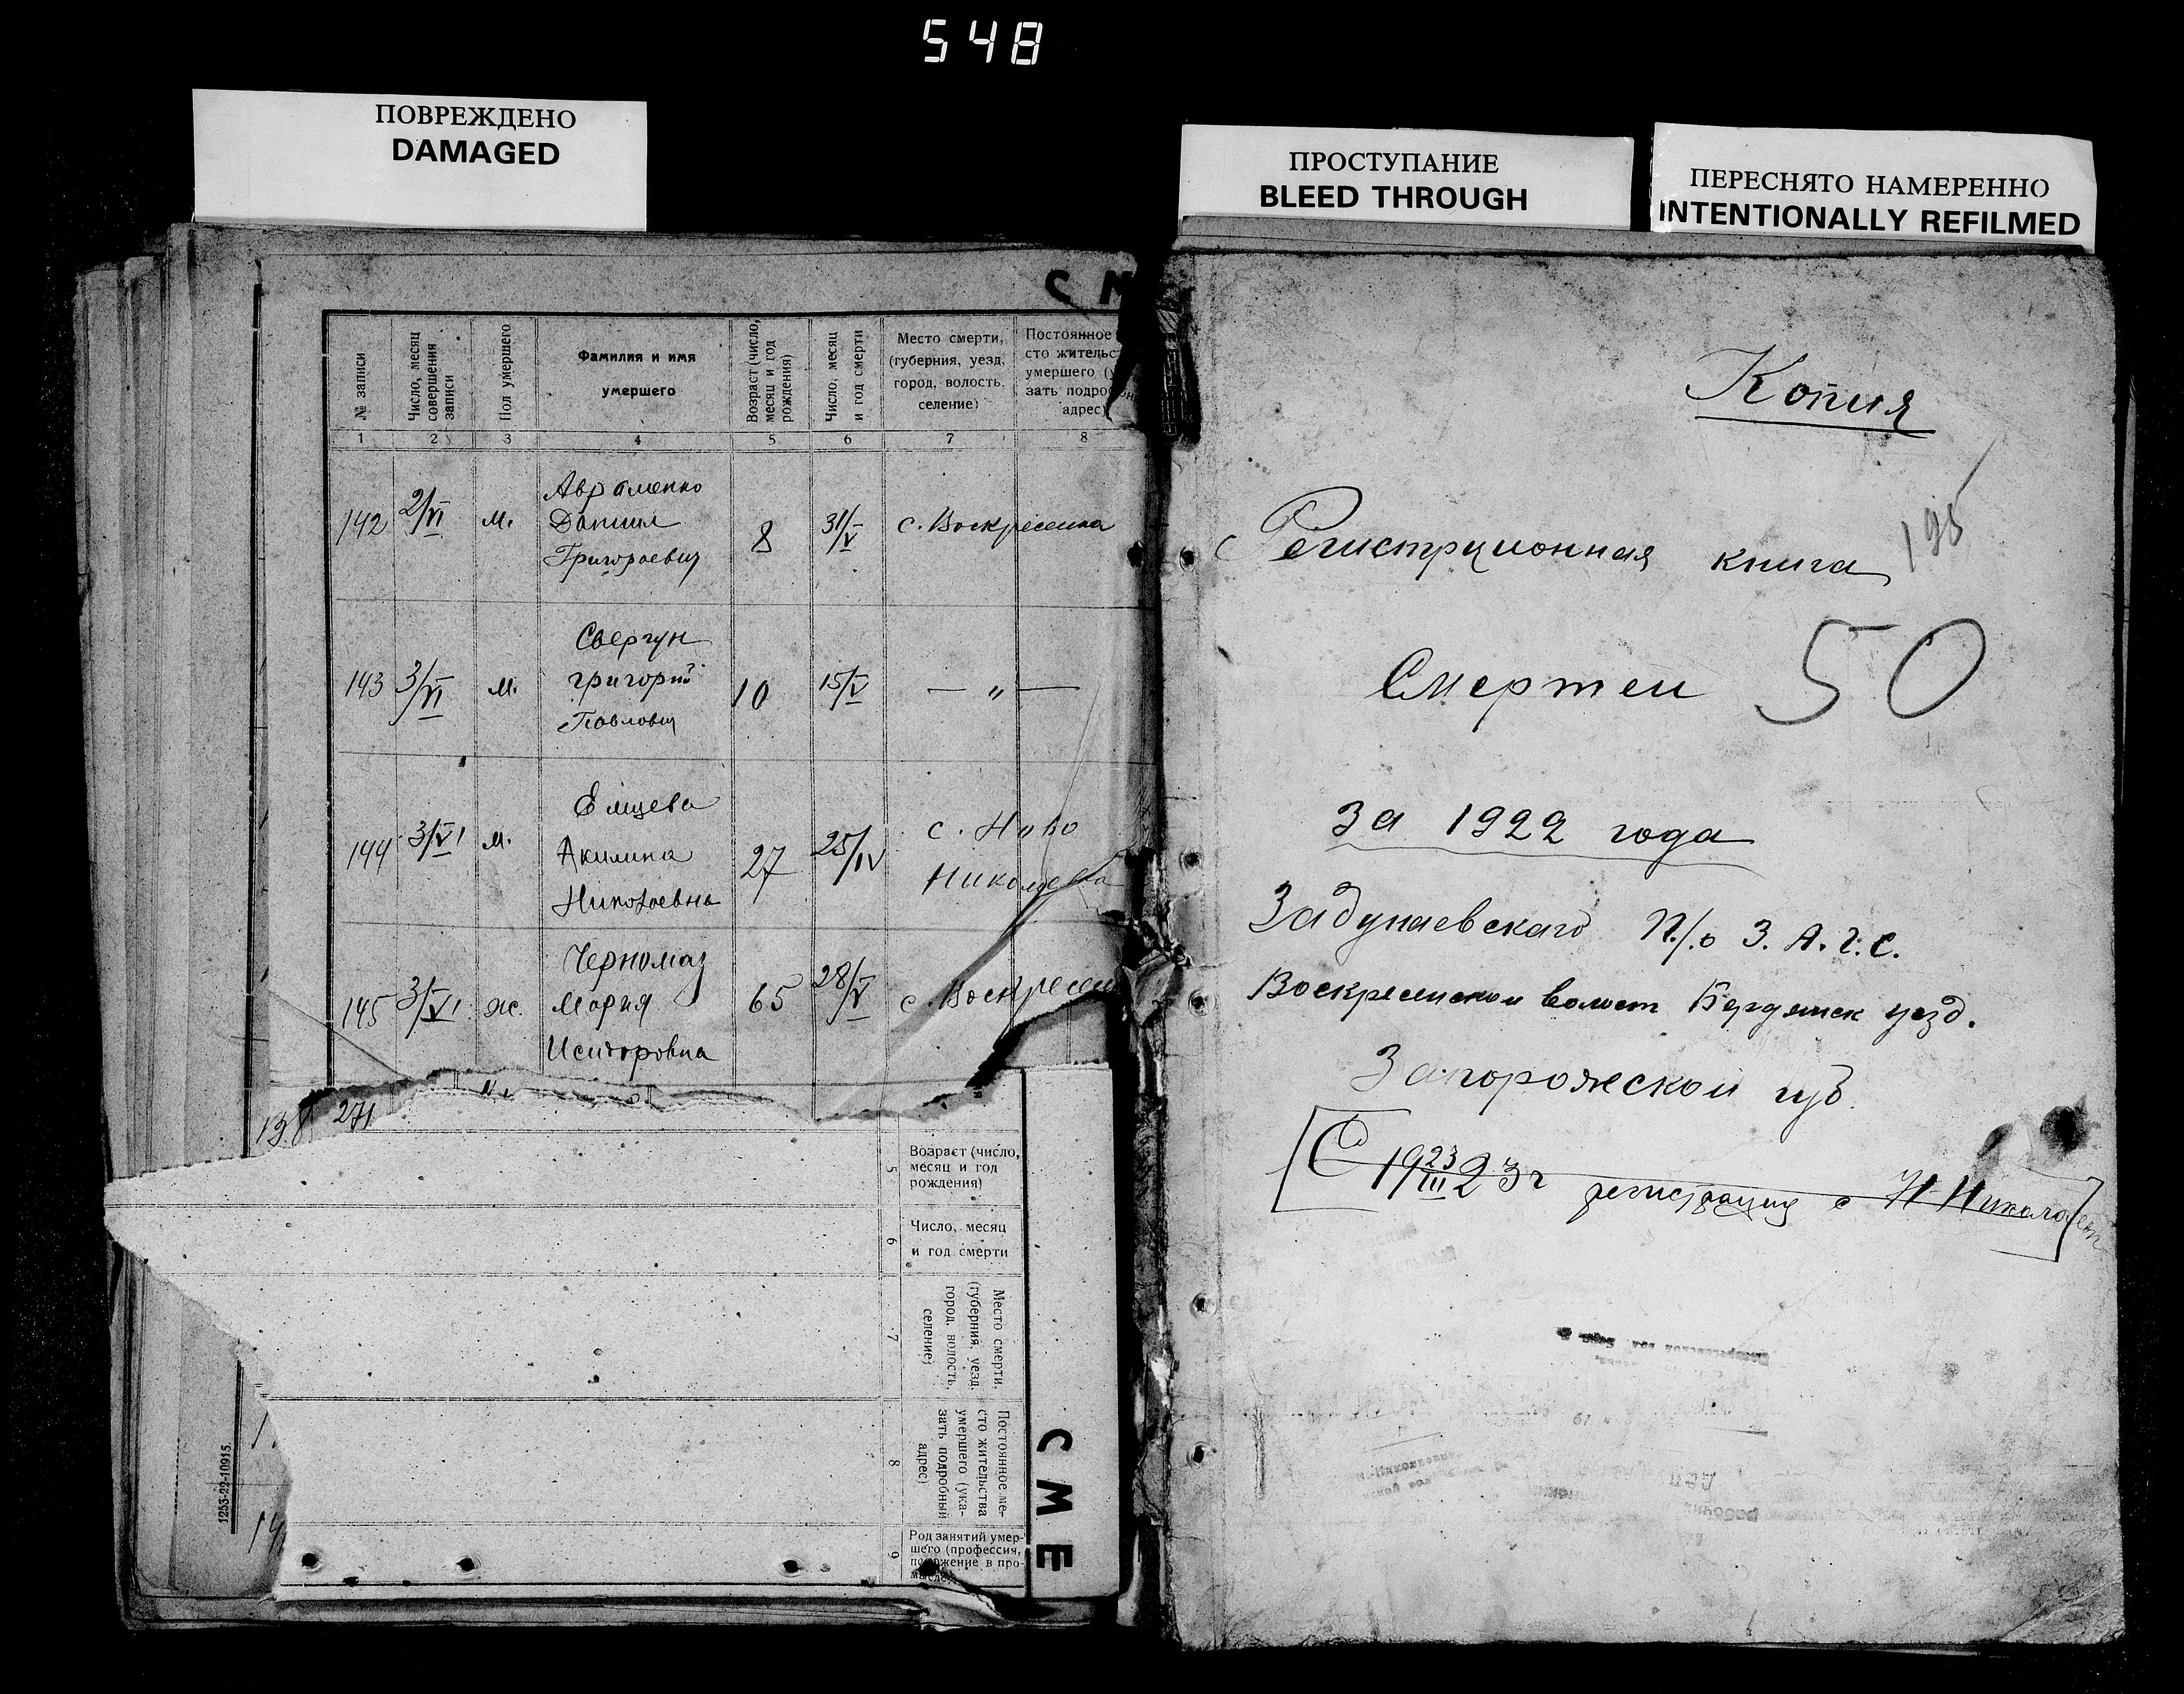 548
ПОВРЕЖДЕНО
DAMAGED
ПРОСТУПАНИЕ
BLEED THROUGH
ПЕРЕСНЯТО НАМЕРЕННО
INTENTIONALLY REFILMED
С М
№ записи
Число, месяц совершения записи
Пол умершего
Фамилия и имя
умершего
Возраст (число, месяц и год рождения)
Число, месяц и год смерти
Место смерти,
(губерния, уезд,
город, волость,
селение)
Постоянное
сто жительс
умершего (у
зать подро
адрес)
1 2 3 4 5 6 7 8
Авраменко
142 2/VI м. Даниил 8 31/V с. Воскресенка
Григораевич
Свергун
143 3/VI м. григорий 10 15/V — „ —
Павлович
Елцева
144 3/VI м. Акилина 27 25/IV с. Ново
Николаевна Николаевка
Черномаз
145 3/VI ж. Мария 65 28/V с. Воскресен
Исидоровна
138 271
5
Возраст (число,
месяц и год
рождения)
6
Число, месяц
и год смерти
7
Место смерти,
(губерния, уезд,
город, волость,
селение)
8
Постоянное ме-
сто жительства
умершего (ука-
зать подробный
адрес)
9
Род занятий умер-
шего (профессия,
положение в про-
мысле)
С М Е
1253-22-10915.
Копия
195
Регистрционная книга
Смертей 50
за 1922 года
Задунаевскаго П/о З. А. Г. С.
Воскресенской волост Бердянск уезд.
Запорожской губ.
С 19 23/III 23 г регистрация с Н-Николаев